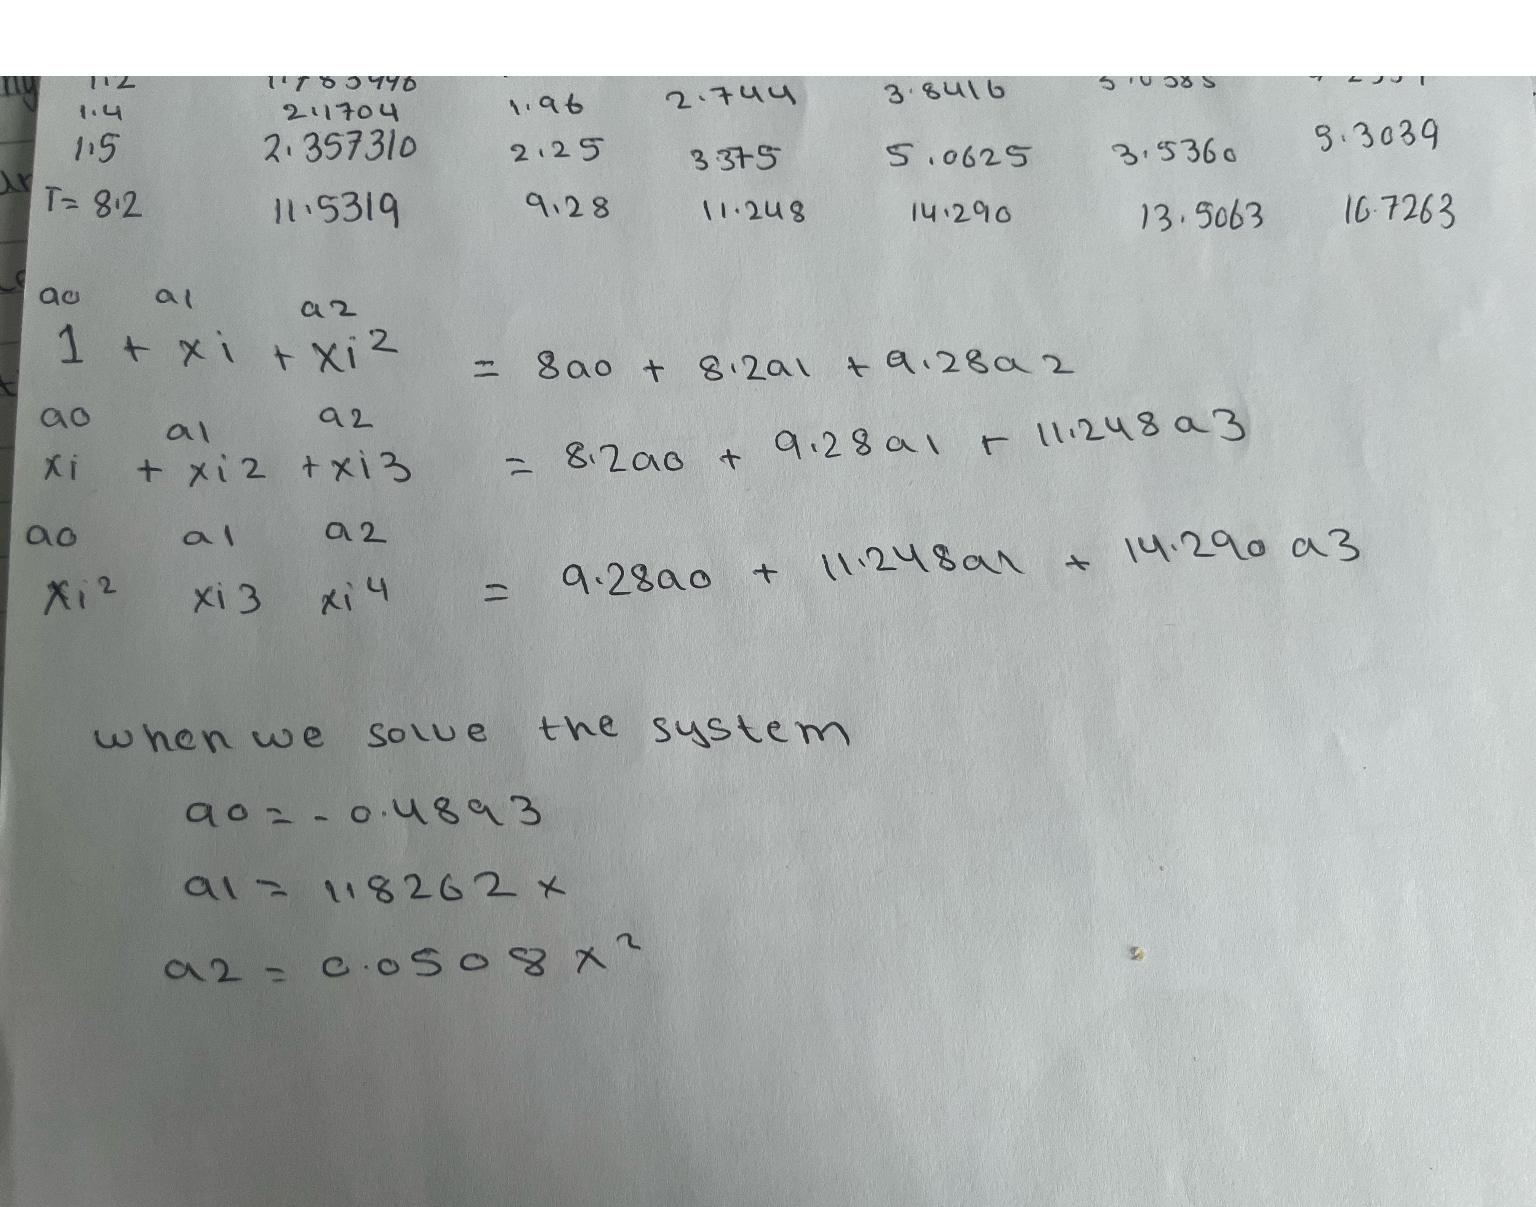 1.4 2.1704 1.96 2.744 3.8416
1.5 2.357310 2.25 3.375 5.0625 3.5360 5.3039
T= 8.2 11.5319 9.28 11.248 14.290 13.5063 16.7263
a0 a1 a2
1 + xi + xi² = 8a0 + 8.2a1 + 9.28a2
a0 a1 a2
xi + xi2 + xi3 = 8.2a0 + 9.28a1 + 11.248a3
a0 a1 a2
xi² xi3 xi4 = 9.28a0 + 11.248a1 + 14.290a3
when we solve the system
a0 = -0.4893
a1 = 1.8262x
a2 = 0.0508x²